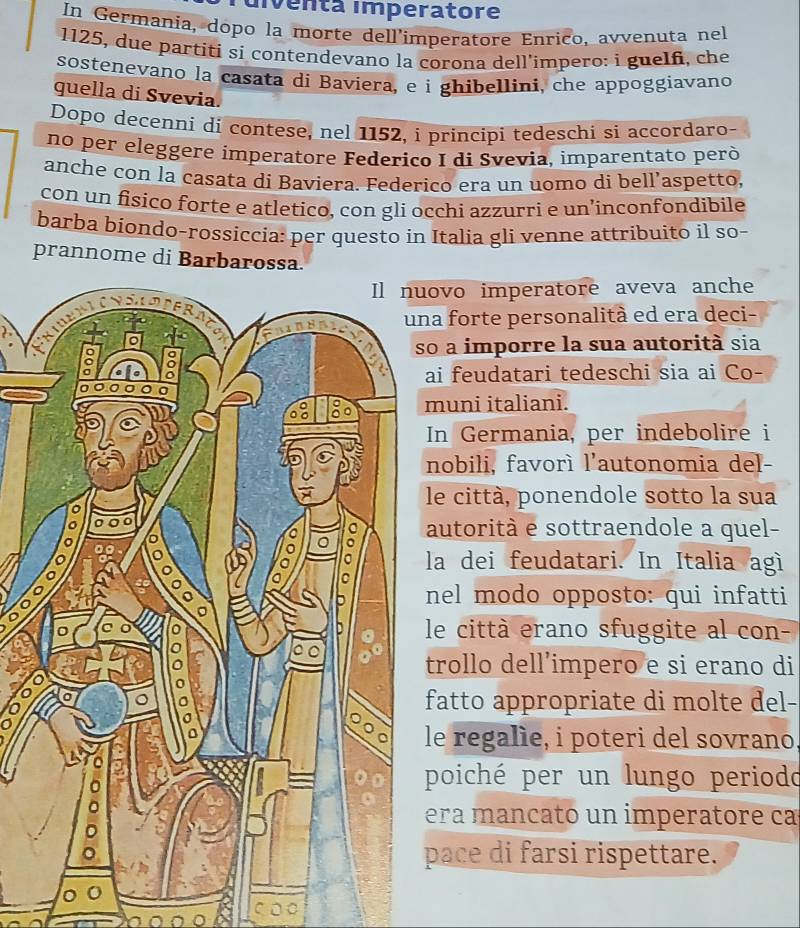 diventa imperatore
In Germania, dopo la morte dell'imperatore Enrico, avvenuta nel
1125, due partiti si contendevano la corona dell'impero: i guelfi, che
sostenevano la casata di Baviera, e i ghibellini, che appoggiavano
quella di Svevia.
Dopo decenni di contese, nel 1152, i principi tedeschi si accordaro-
no per eleggere imperatore Federico I di Svevia, imparentato però
anche con la casata di Baviera. Federico era un uomo di bell'aspetto,
con un fisico forte e atletico, con gli occhi azzurri e un'inconfondibile
barba biondo-rossiccia: per questo in Italia gli venne attribuito il so-
prannome di Barbarossa.
Il nuovo imperatore aveva anche
una forte personalità ed era deci-
so a imporre la sua autorità sia
ai feudatari tedeschi sia ai Co-
muni italiani.
In Germania, per indebolire i
nobili, favorì l'autonomia del-
le città, ponendole sotto la sua
autorità e sottraendole a quel-
la dei feudatari. In Italia agì
nel modo opposto: qui infatti
le città erano sfuggite al con-
trollo dell'impero e si erano di
fatto appropriate di molte del-
le regalìe, i poteri del sovrano,
poiché per un lungo periodo
era mancato un imperatore ca
pace di farsi rispettare.